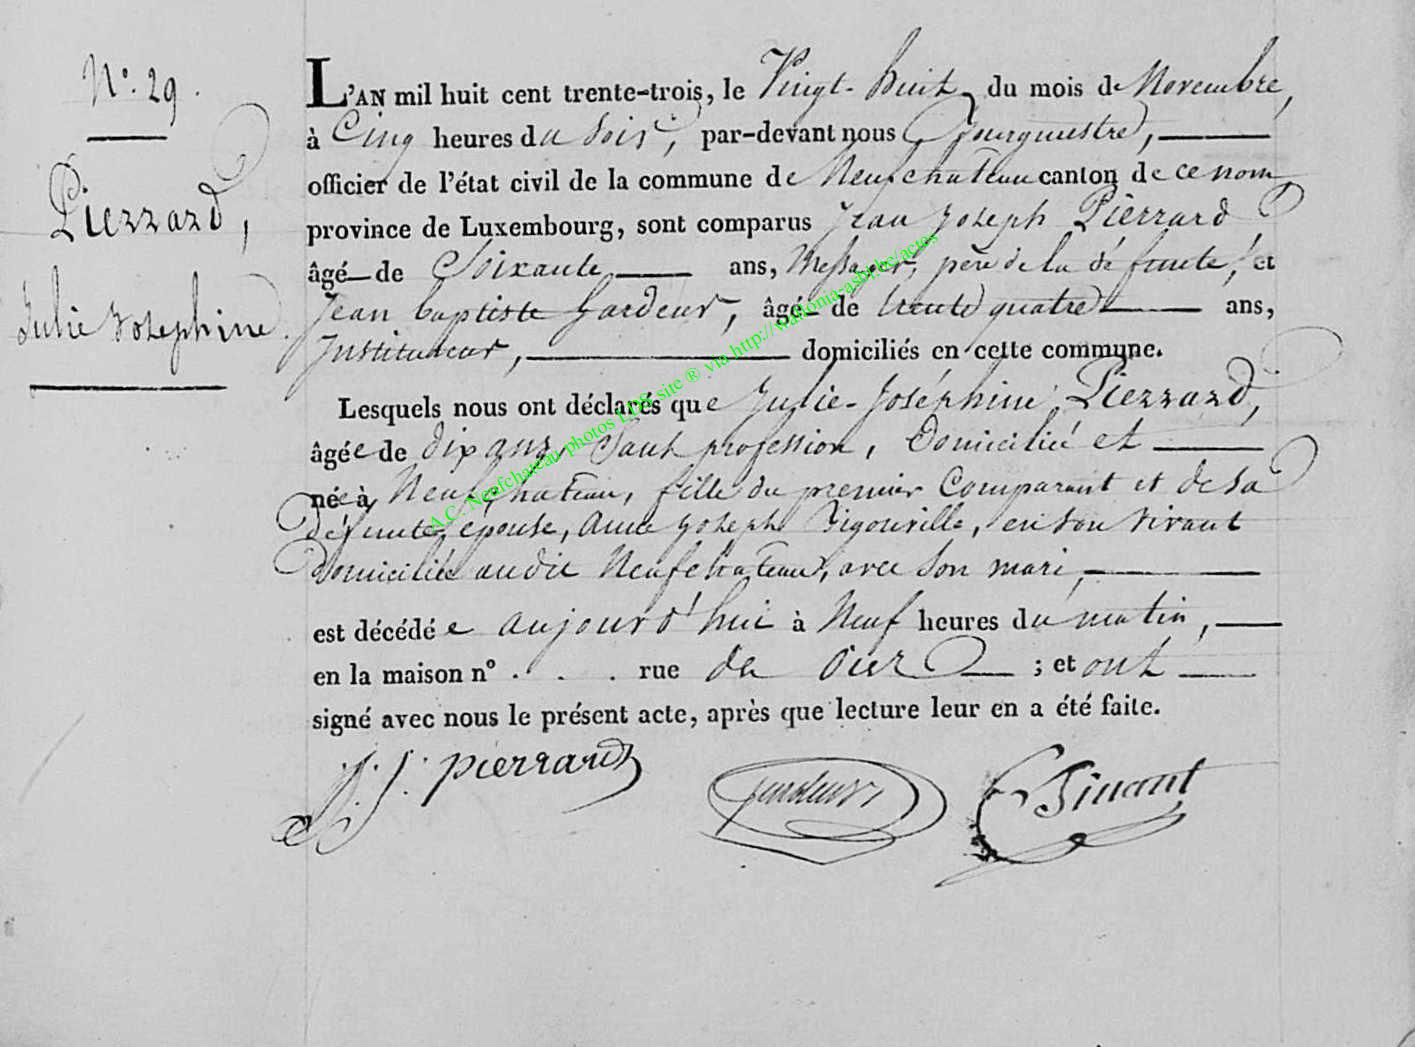 N°. 29.
Pierrard,
Julie Josephine.
L'AN mil huit cent trente-trois, le Vingt-huit du mois de Novembre,
à Cinq heures du soir, par-devant nous Bourgmestre,
officier de l'état civil de la commune de Neufchateau canton de ce nom,
province de Luxembourg, sont comparus Jean Joseph Pierrard,
âgé de Soixante ans, Messager, père de la défunte, et
Jean baptiste Gardeur, âgé de trente quatre ans,
Instituteur, domiciliés en cette commune.
Lesquels nous ont déclarés que Julie-Joséphine Pierrard,
âgée de dix ans, Sans profession, Domiciliée et
née à Neufchateau, fille du premier Comparant et de sa
défunte épouse, Anne Joseph, en son vivant
Domiciliée audit Neufchateau, avec son mari,
est décédée aujourd'hui à Neuf heures du matin,
en la maison n° . . . rue de ; et ont
signé avec nous le présent acte, après que lecture leur en a été faite.
J. J. pierrard
gardeur
Sinant
A.C. Neufchateau photos LDS site ® via http://wallonia-asbl.be/actes